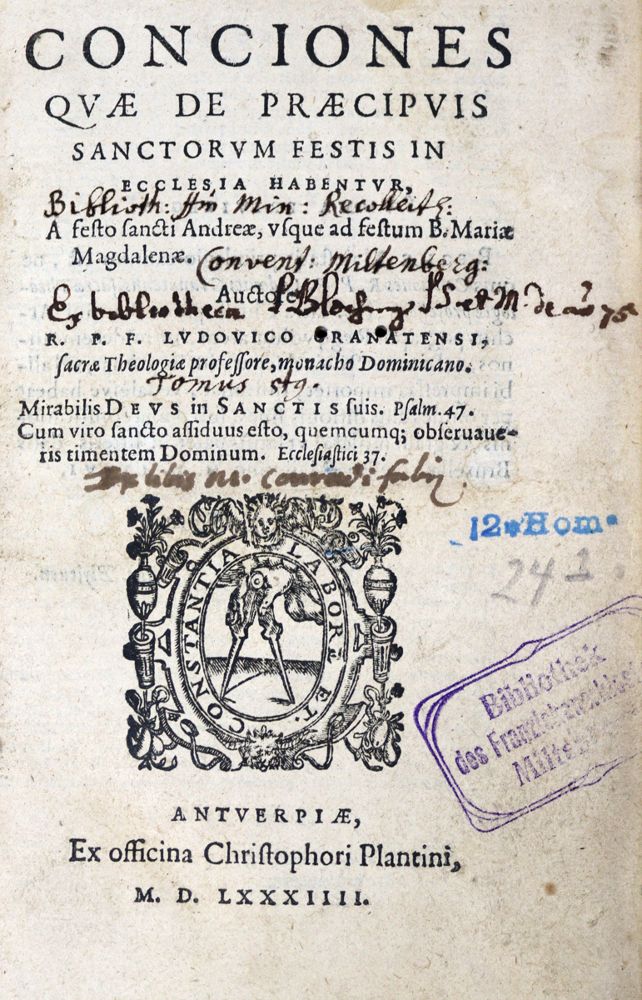 CONCIONES
QVÆ DE PRÆCIPVIS
SANCTORVM FESTIS IN
ECCLESIA HABENTVR,
Biblioth: Min: Recollect:
A festo sancti Andreæ, vsque ad festum B. Mariæ
Magdalenæ. Convent: Miltenberg:
Auctore
Ex bibliotheca
R. P. F. LVDOVICO GRANATENSI,
sacræ Theologiæ professore, monacho Dominicano.
Tomus
Mirabilis DEVS in SANCTIS suis. Psalm. 47.
Cum viro sancto assiduus esto, quemcumq; obseruaue-
ris timentem Dominum. Ecclesiastici 37.
Ex libis M. Conradi
CONSTANTIA LABORE ET
12 Hom.
241.
Bibliothek
des Franziskanerklos
Milte
ANTVERPIÆ,
Ex officina Christophori Plantini,
M. D. LXXXIIII.